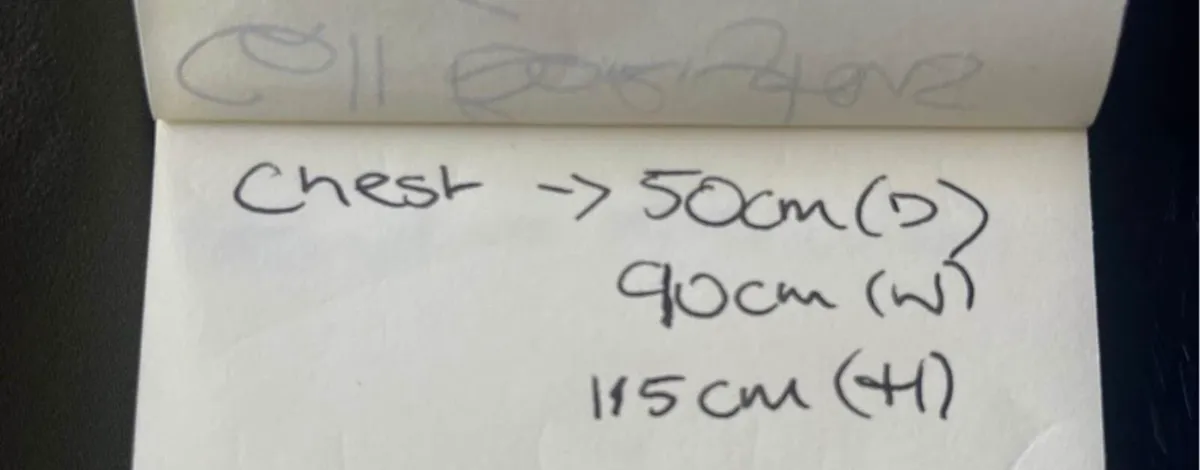 Chest -> 50cm (D)
90cm (W)
115cm (H)